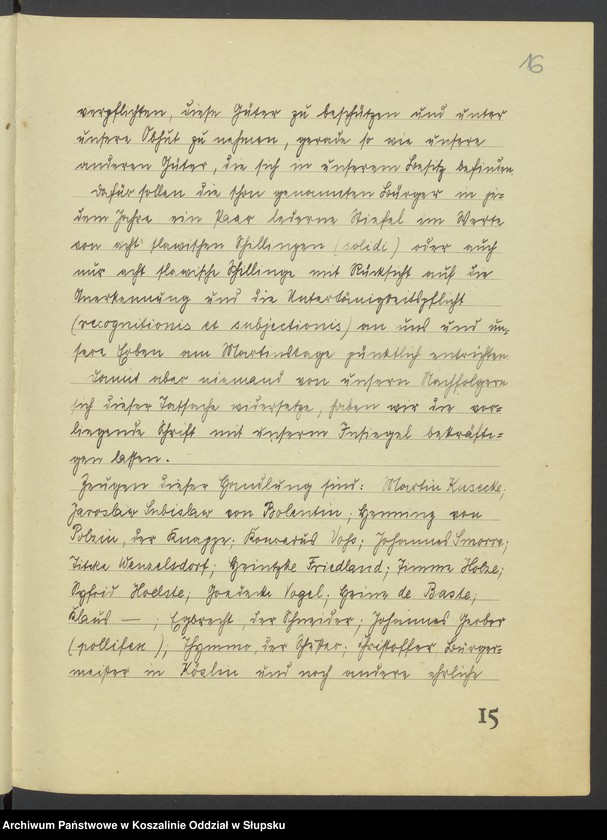 16
verpflichten, diese Güter zu beschützen und unter
unsere Obhut zu nehmen, gerade so wie unsere
anderen Güter, die sich in unserem Besitz befinden.
Dafür sollen die schon genannten Bürger in je-
dem Jahre ein Paar lederne Stiefel im Werte
von acht slawischen Schillingen (solidi) oder auch
nur acht slawische Schillinge mit Rücksicht auf die
Anerkennung und die Untertänigkeitspflicht
(recognitionis et subjectionis) an uns und un-
sere Erben am Martinstage pünktlich entrichten.
Damit aber niemand von unsern Nachfolgern
sich dieser Tatsache widersetze, haben wir die vor-
liegende Schrift mit unserm Insiegel bekräfti-
gen lassen.
Zeugen dieser Handlung sind: Martin Kusecke;
Jaroslaw Subislaw von Bolentin; Henning von
Polzin, der Knappe; Konradus Vohs; Johannes Smorre;
Wenzelsdorf; Heintzke Friedland; Temme Holze;
Syfrid Hoelste; Goedecke Vogel; Heine de Baste;
Klaus — ; Egbrecht, der Schneider; Johannes Gerber
(pollifex); Thymmo, der ; Christoffer Bürger-
meister in Köslin und noch andere ehrliche
15
Archiwum Państwowe w Koszalinie Oddział w Słupsku